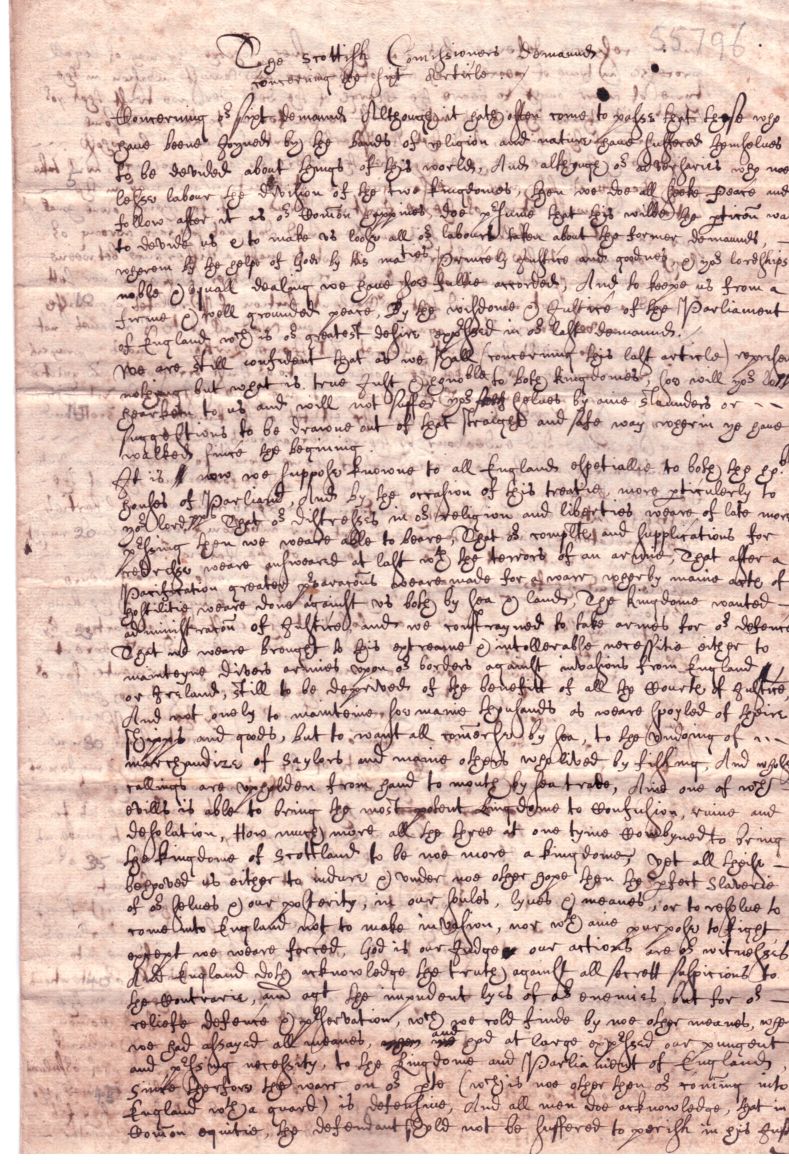 55796
The Scottish Comissioners demaunds
concerning the sixt Article
Concerning or sixt demaund Although it hath often come to passe that those who
have beene joyned by the bands of religion and nature have suffered themselves
to be devided about things of this world, And although or adversaries who noe
lesse labour the division of the two kingdomes, then we doe all seeke Peace and
follow after it as or Comon happines doe psume that this wilbe the pticon wa
to devide us & to make us loose all or labours taken about the former demaunds,
wherein by the helpe of God by his maties Princely Justice and goodnes, & yor lordships
noble & equall dealing we have soe fullie accorded, And to keepe us from a
firme & well grounded peace, By the wisdome & Justice of the Parliament
of England wch is or greatest desire expssed in or last demaund.
We are still confident that as we shall (concerning this last article)
nothing but what is true Just & honoble to both kingdomes, soe will yor lopps
hearken to us and will not suffer yor selves by anie slaunders or
suggestions to be drawne out of that straight and safe way wherin ye have
walked since the beginning.
It is now we suppose knowne to all England espetiallie to both the
houses of Parliamt, And by the occasion of this treatie, more pticulerly to
yor lopps That or distresses in or religion and liberties weare of late more
pssing then we weare able to beare, That or complts and supplications for
redresse weare answeared at last wth the terrors of an armie, That after a
Pacification greater pparacons weare made for a warr, wherby manie acts of
hostilitie weare done against us both by sea & land, The kingdome wanted
administracon of Justice, and we constrayned to take armes for or defence
That we weare brought to this extreame & intollerable necessitie either to
mainteyne divers armies upon or borders against invasions from England
or Ireland, still to be deprived of the benefitt of all the Courts of Justice,
And not onely to mainteine soe manie thousands as weare spoyled of their
shipps and goods, but to want all comerse by sea, to the undoing of
marchandize of saylers and manie others who lived by fishing, And whose
callings are upholden from hand to mouth by sea trade, And one of wch
evills is able to bring the most potent kingdome to Confusion, ruine and
desolation, How much more all the three at one tyme Combyned to bring
the kingdome of Scottland to be noe more a kingdome, Yet all theise
behoved us either to indure & under noe other hope then the pfect Slaverie
of or selves & our posterity, in our soules, lyves & meanes, or to resolve to
come into England not to make invasion, nor wth anie purpose to fight
except we weare forced, God is our Judge our actions are or witnesses
And England doth acknowledge the truth against all secrett suspicions to
the Contrarie, and agt the impudent lyes of or enemies, but for or
reliefe defence & pservation, wch we cold finde by noe other meanes, whe
we had assayed all meanes, and had at large expssed our pungent
and pssing necessity, to the kingdome and Parliament of England,
Since therfore the warr on or pte (wch is noe other then or coming into
England wth a guard) is defensive, And all men doe acknowledge, that in
Comon equitie, the defendant shold not be suffered to perish in his Just